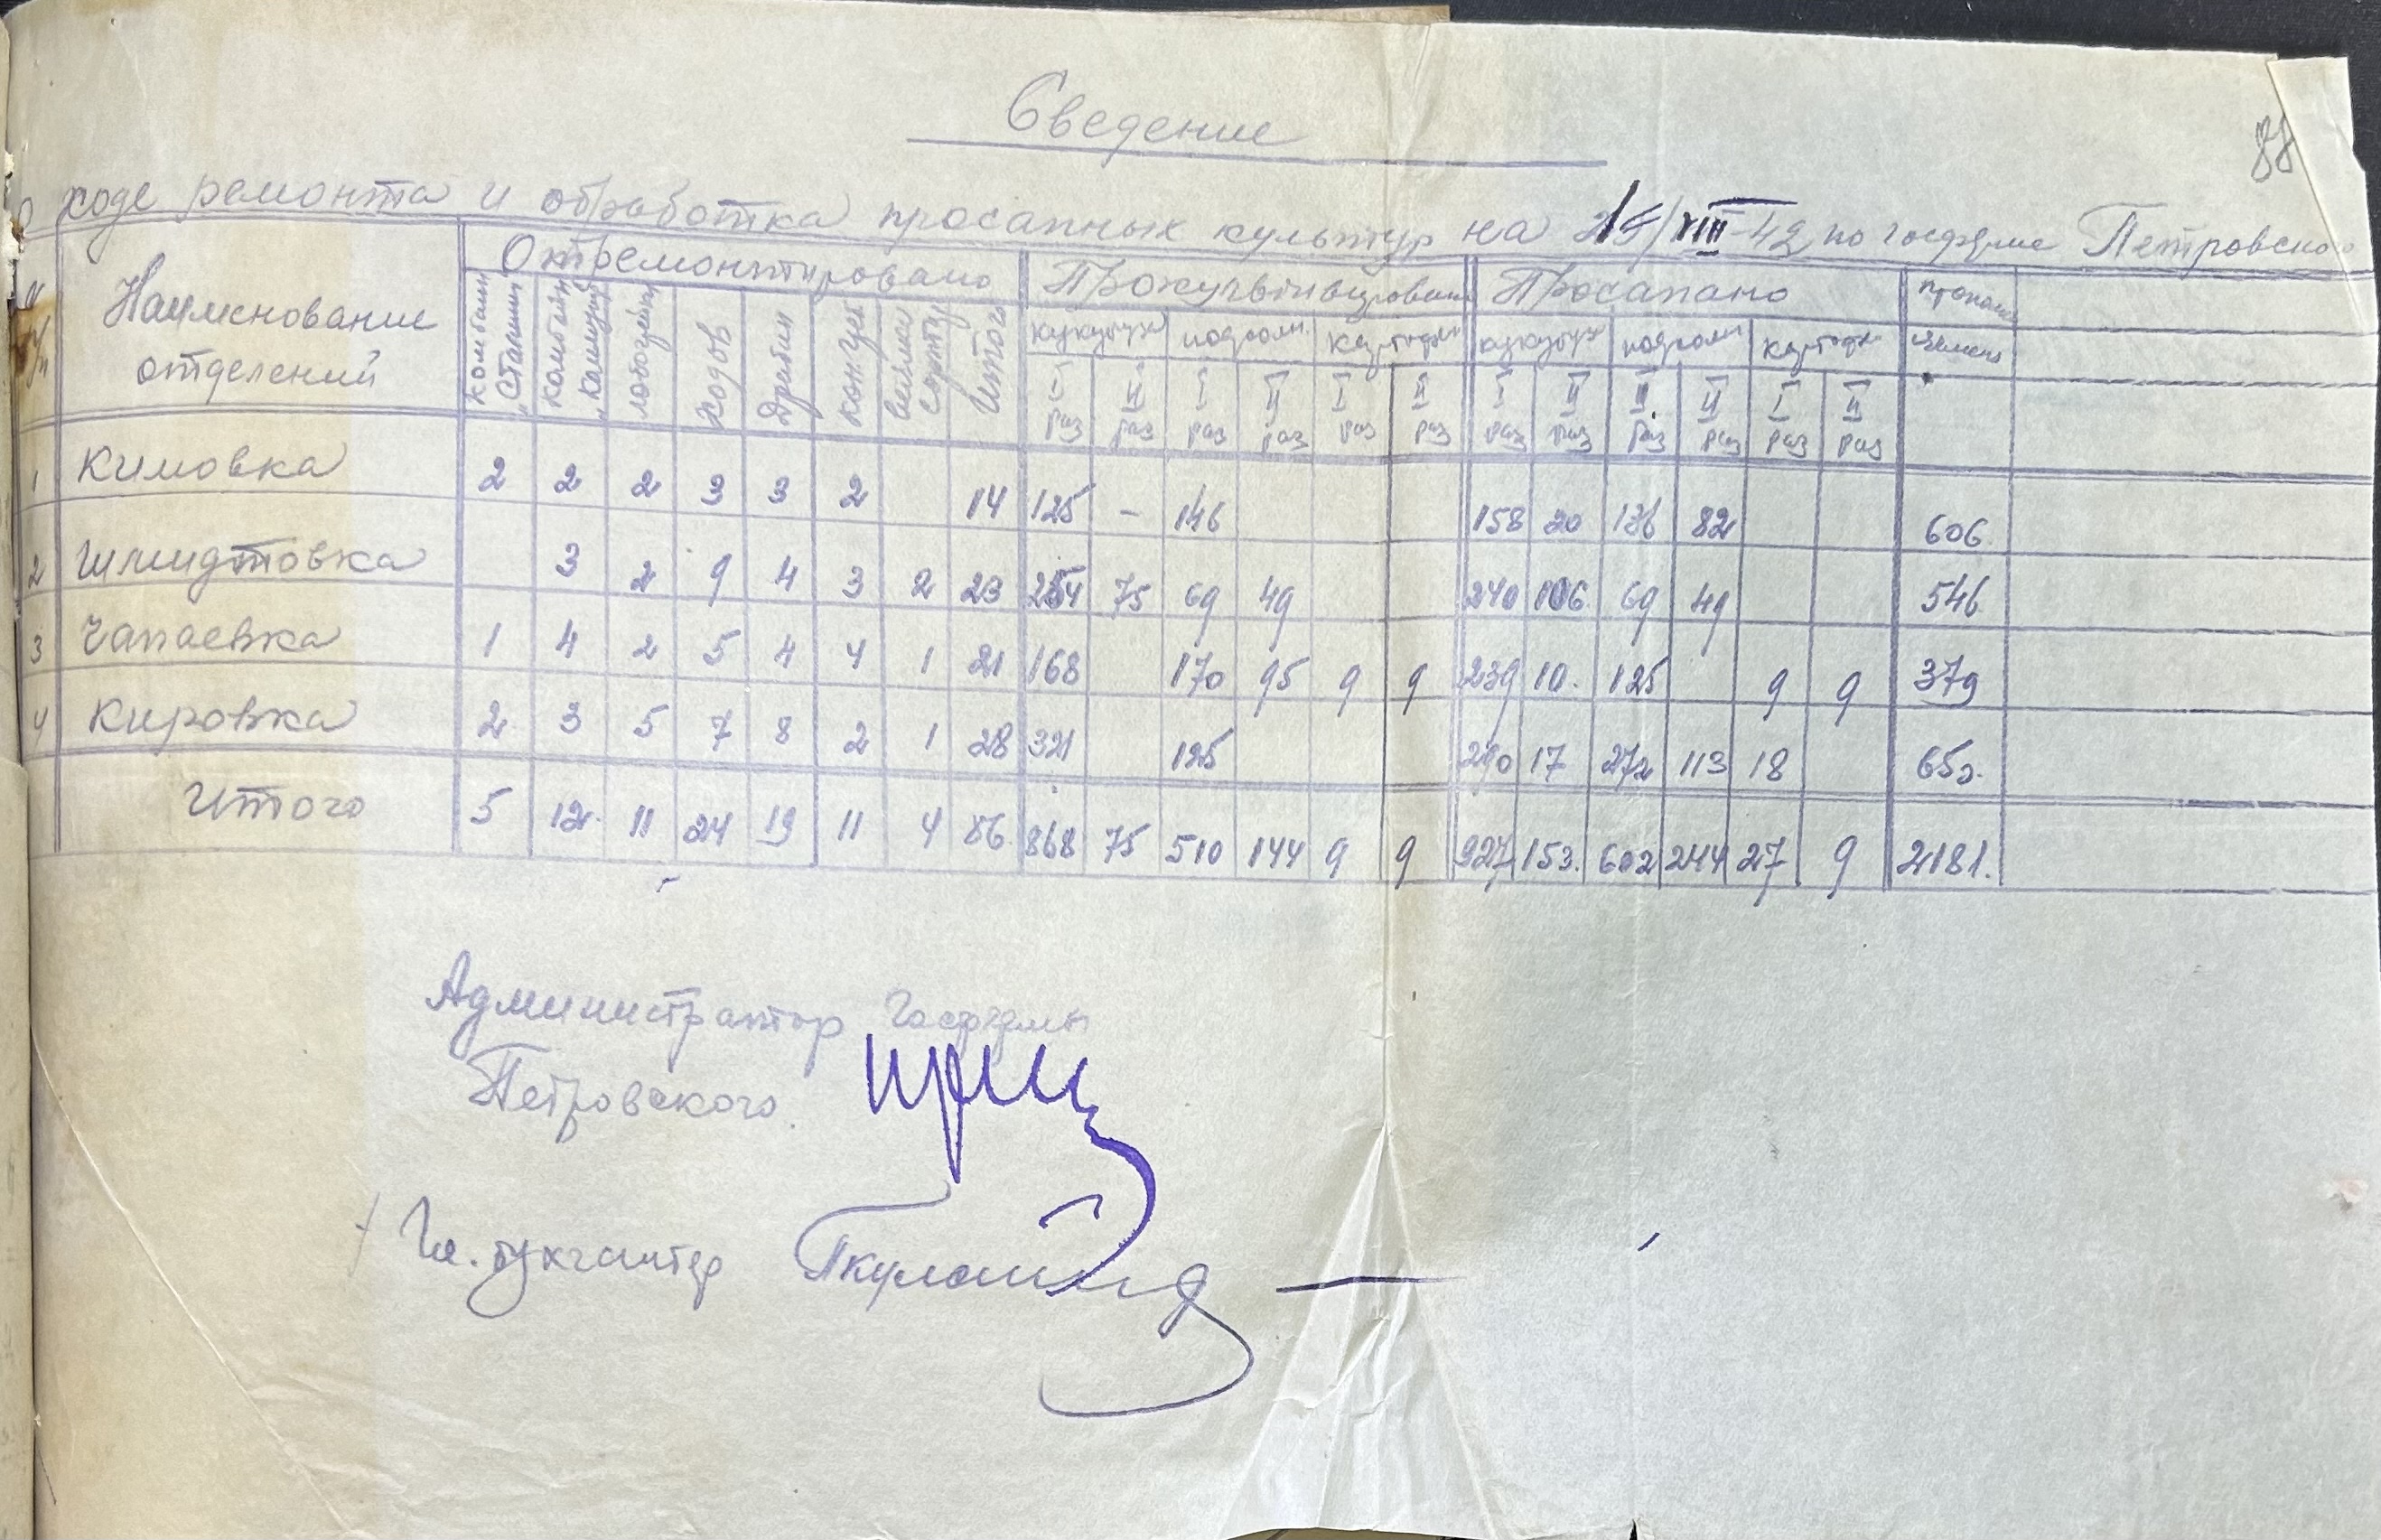 Сведение
88
о ходе ремонта и обработка просапных культур на 15/VIII-42 по госферме Петровского
№ п/п Наименование отделений Отремонтировано Прокультивировано Просапано Прополн
комбайн "Сталинец" комбайн "Коммунар" лобогреек Ходов Дробин кон. гр Итого кукуруза подсолн. картофель кукуруза подсолн картофе
I раз II раз I раз II раз I раз II раз I раз II раз II раз II раз I раз II раз
1 Кимовка 2 2 2 3 3 2 14 125 - 146 158 20 136 82 606
2 Шмидтовка 3 2 9 4 3 2 23 254 75 69 49 240 106 69 49 546
3 Чапаевка 1 4 2 5 4 4 1 21 168 170 95 9 9 239 10. 125 9 9 379
4 Кировка 2 3 5 7 8 2 1 28 321 125 290 17 272 113 18 650.
Итого 5 12 11 24 19 11 4 86 868 75 510 144 9 9 927 153. 602 244 27 9 2181.
Администратор Госфермы
Петровского
Гл. бухгалтер